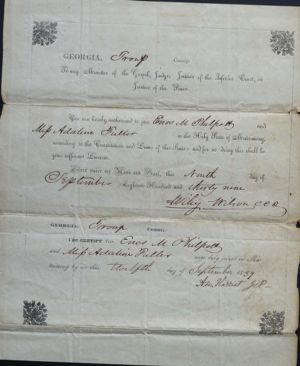 GEORGIA, Troup County:
To any Minister of the Gospel, Judge, Justice of the Inferior Court, or
Justice of the Peace.
You are hereby authorized to join Enos M. Philpott and
Miss Adaline Fuller in the Holy State of Matrimony,
according to the Constitution and Laws of this State; and for so doing this shall be
your sufficient License.
Given under my Hand and Seal, this Ninth day of
September Eighteen Hundred and thirty nine
Wiley Wilson C C O
GEORGIA: Troup County:
I CERTIFY That Enos M. Philpott
and Miss Adaline Fuller were duly joined in Ma-
trimony by me this Twelfth day of September 1839
J.P.